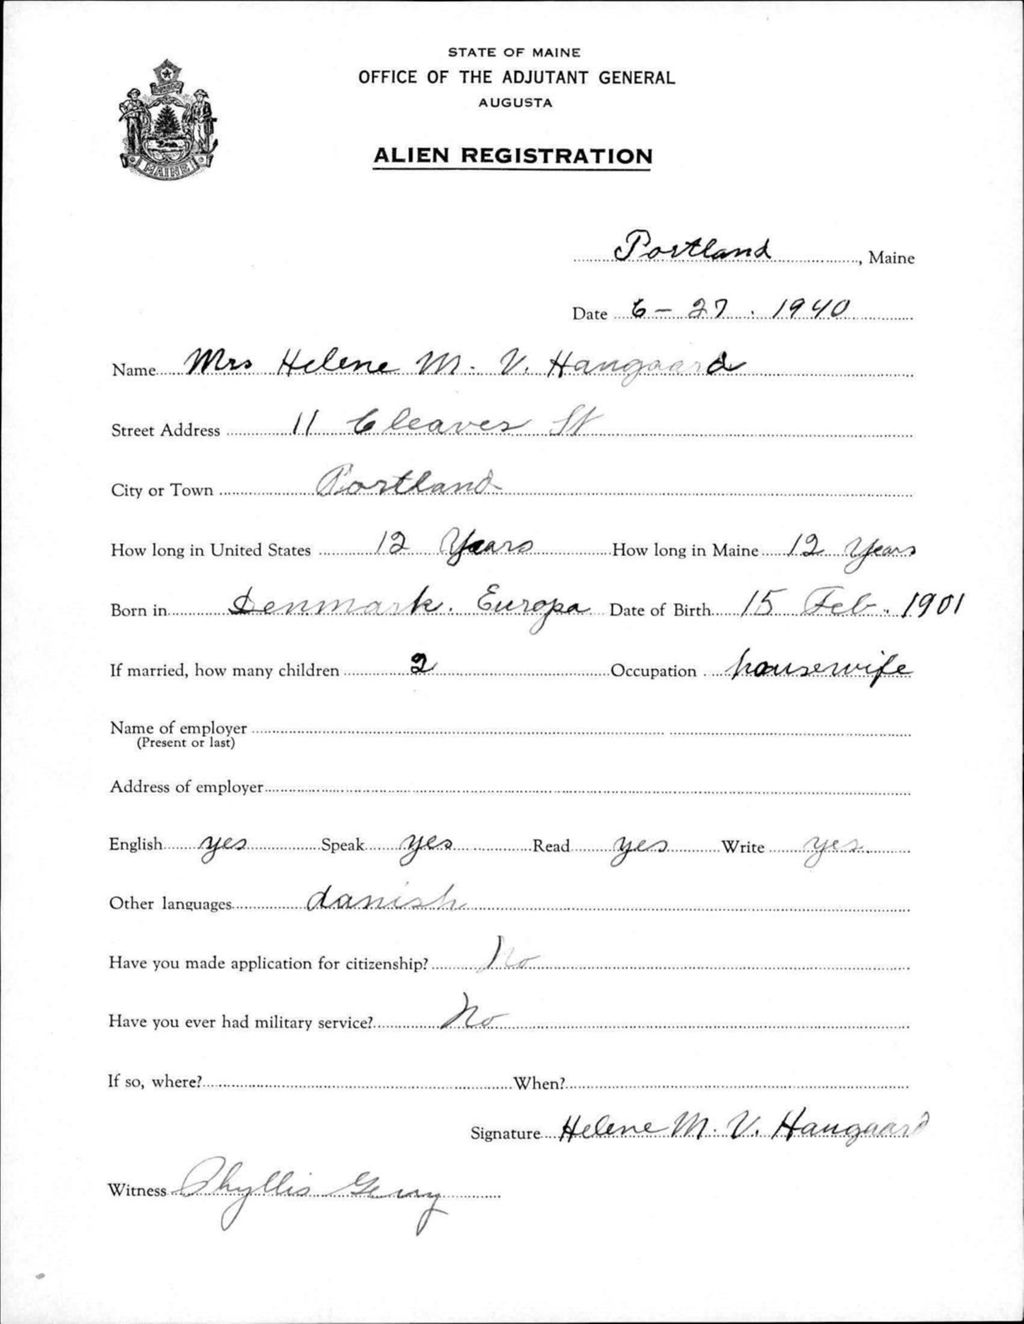 STATE OF MAINE
OFFICE OF THE ADJUTANT GENERAL
AUGUSTA
ALIEN REGISTRATION
MAINE
Portland, Maine
Date 6 - 27. 1940
Name Mrs Helene M. V. Haugaard
Street Address 11 Cleaves St
City or Town Portland
How long in United States 12 Years How long in Maine 12 Years
Born in Denmark. Europa Date of Birth 15 Feb. 1901
If married, how many children 2 Occupation housewife
Name of employer
(Present or last)
Address of employer
English yes Speak yes Read yes Write yes
Other languages danish
Have you made application for citizenship? No
Have you ever had military service? No
If so, where? When?
Signature Helene M. V. Haugaard
Witness Phyllis Gerry